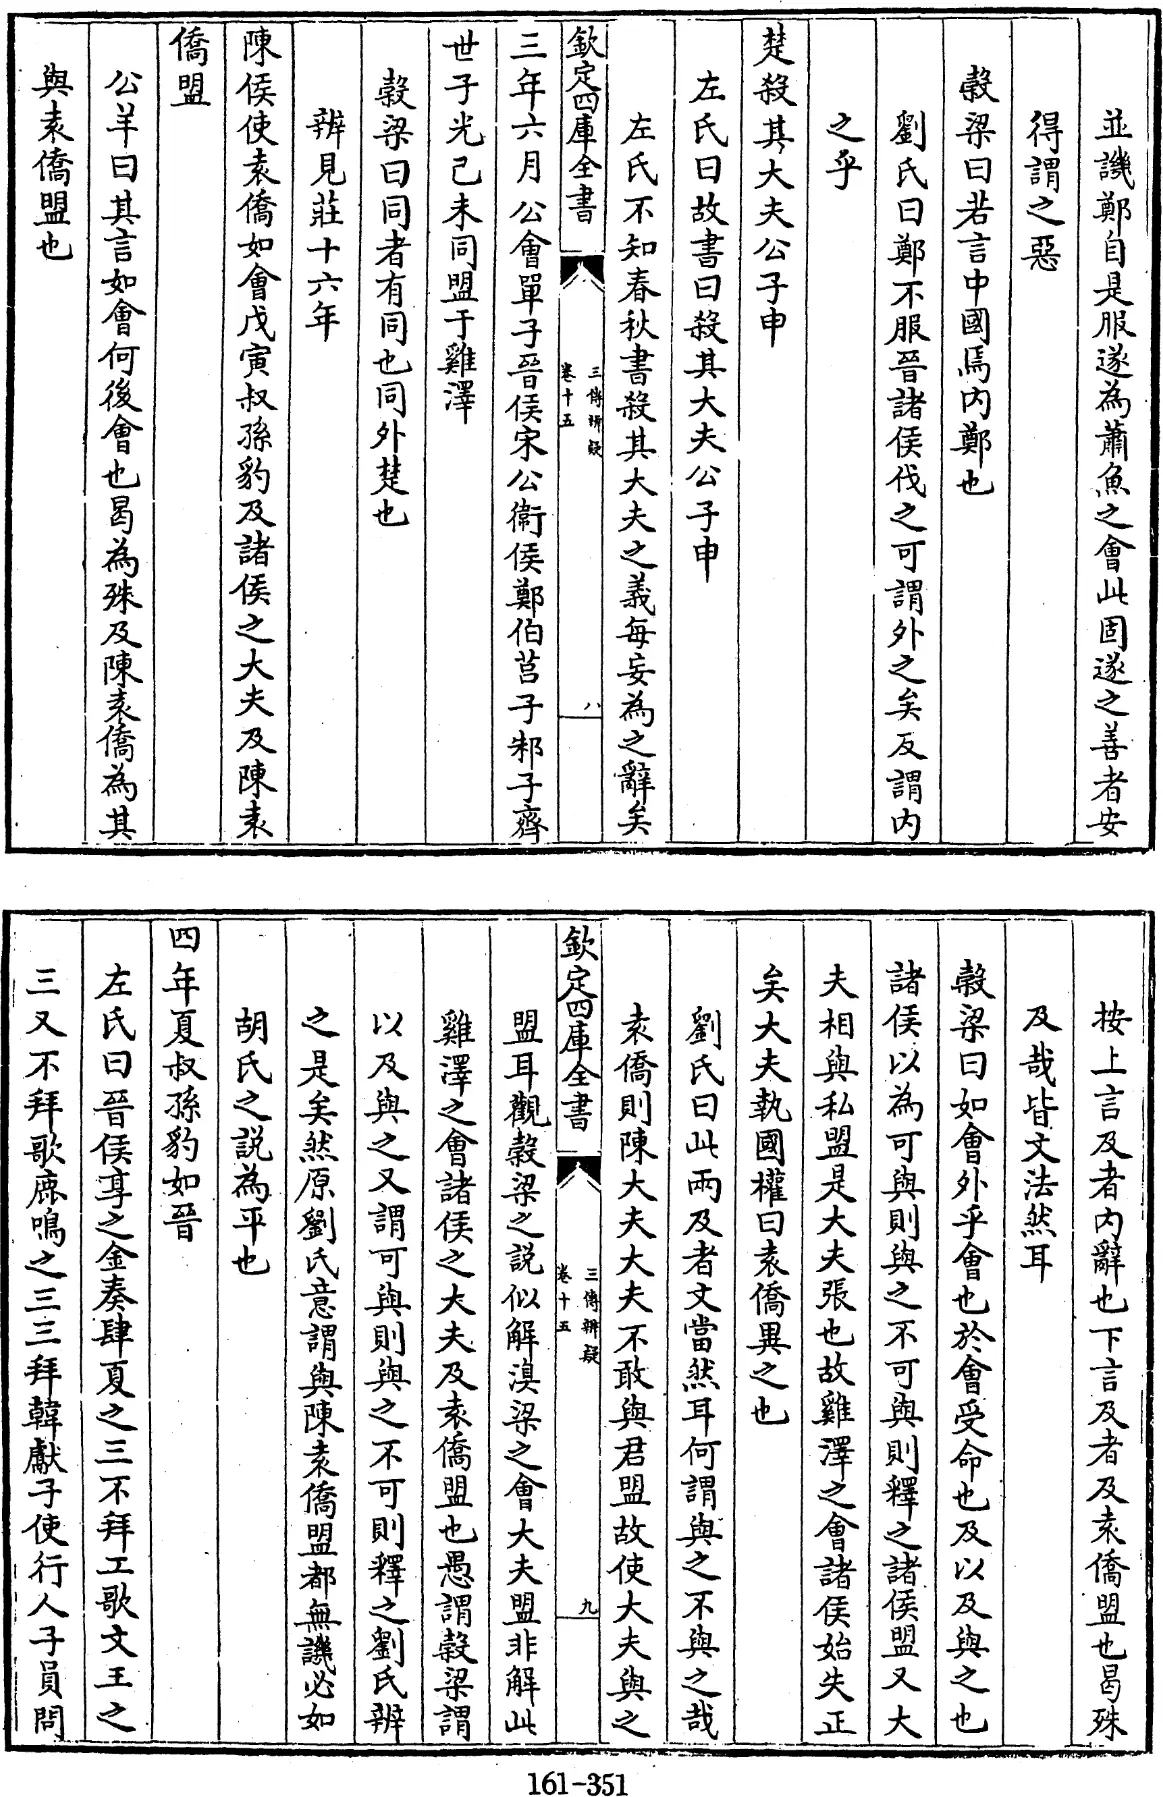 並譏鄭自是服遂為蕭魚之會此固遂之善者安
得謂之惡
穀梁曰若言中國焉内鄭也
劉氏曰鄭不服晉諸侯伐之可謂外之矣反謂内
之乎
楚殺其大夫公子申
左氏曰故書曰殺其大夫公子申
左氏不知春秋書殺其大夫之義每妄為之辭矣
欽定四庫全書
三傳辨疑
卷十五
八
三年六月公會單子晉侯宋公衛侯鄭伯莒子邾子齊
世子光己未同盟于雞澤
穀梁曰同者有同也同外楚也
辨見莊十六年
陳侯使袁僑如會戊寅叔孫豹及諸侯之大夫及陳袁
僑盟
公羊曰其言如會何後會也曷為殊及陳袁僑為其
與袁僑盟也
按上言及者内辭也下言及者及袁僑盟也曷殊
及哉皆文法然耳
穀梁曰如會外乎會也於會受命也及以及與之也
諸侯以為可與則與之不可與則釋之諸侯盟又大
夫相與私盟是大夫張也故雞澤之會諸侯始失正
矣大夫執國權曰袁僑異之也
劉氏曰此兩及者文當然耳何謂與之不與之哉
袁僑則陳大夫大夫不敢與君盟故使大夫與之
欽定四庫全書
三傳辨疑
卷十五
九
盟耳觀穀梁之説似解溴梁之會大夫盟非解此
雞澤之會諸侯之大夫及袁僑盟也愚謂穀梁謂
以及與之又謂可與則與之不可則釋之劉氏辨
之是矣然原劉氏意謂與陳袁僑盟都無譏必如
胡氏之説為平也
四年夏叔孫豹如晉
左氏曰晉侯享之金奏肆夏之三不拜工歌文王之
三又不拜歌鹿鳴之三三拜韓獻子使行人子員問
161-351